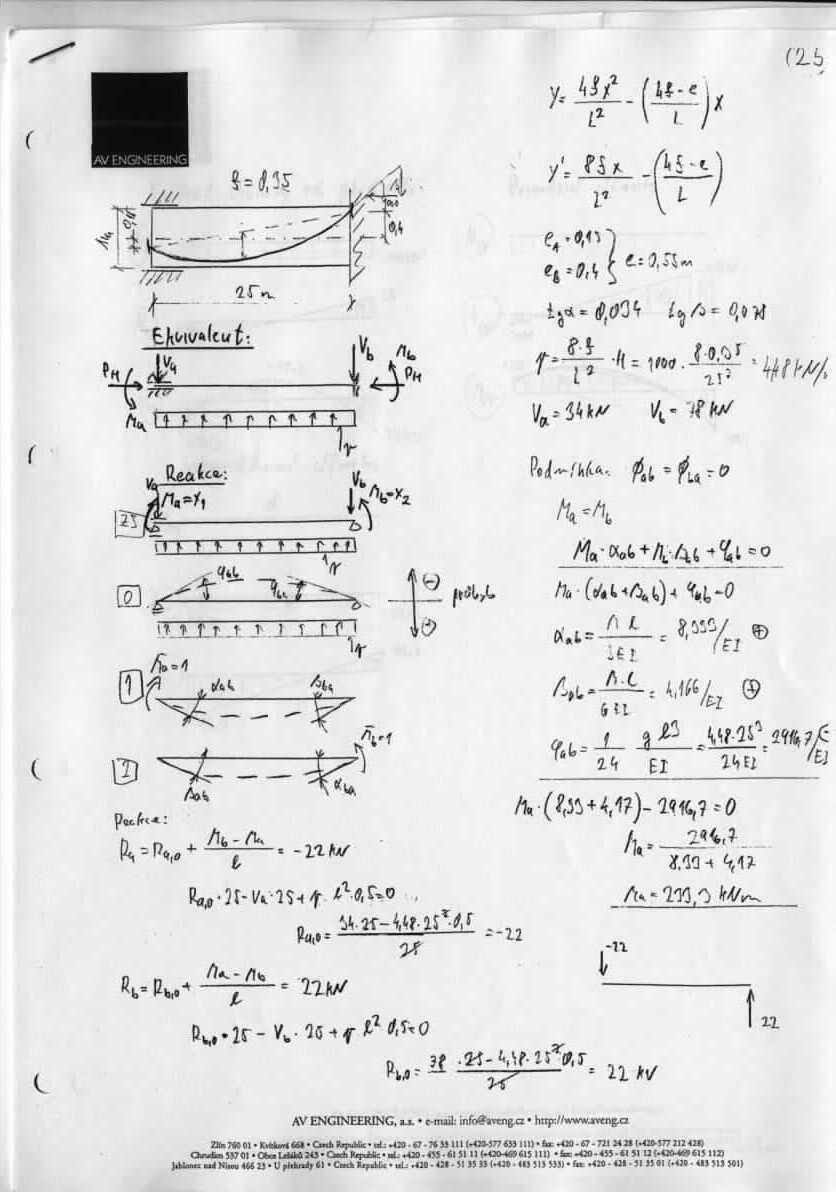 (25
AV ENGINEERING
f = 0,35
25 m
Ekvivalent:
Va
Vb
Mb
PH
PH
Ma
r
Reakce:
Va
Vb
Ma=X1
Mb=X2
r
0
φab
r
průhyb
(-)
(+)
1
M̄a=1
αab
βba
2
M̄b=1
βab
αba
Ra = Ra,0 + (Mb - Ma)/l = -22 kN
Ra,0 · 25 - Va · 25 + r · l² · 0,5 = 0
Ra,0 = (34·25 - 4,48·25²·0,5)/25 = -22
Rb = Rb,0 + (Ma - Mb)/l = 22 kN
Rb,0 · 25 - Vb · 25 + r l² 0,5 = 0
Rb,0 = (78·25 - 4,48·25²·0,5)/25 = 22 kN
Y = 4f x²/L² - ((4f - e)/L) x
Y' = 8f x/L² - ((4f - e)/L)
eA = 0,15
eB = 0,4
} e = 0,55 m
tg α = 0,034 tg β = 0,078
r = (8·f/L²) · H = 1000 · (8·0,35/25²) = 4,48 kN/
Va = 34 kN Vb = 78 kN
Podmínka: ϕab = ϕba = 0
Ma = Mb
Ma · αab + Mb · βab + φab = 0
Ma · (αab + βab) + φab = 0
αab = 1·l/3EI = 8,333/EI (+)
βab = 1·l/6EI = 4,166/EI (+)
φab = (1/24) (g l³/EI) = 4,48·25³/24EI = 2916,7/EI
Ma · (8,33 + 4,17) - 2916,7 = 0
Ma = 2916,7/(8,33 + 4,17)
Ma = 233,3 kNm
-22
22
AV ENGINEERING, a.s. • e-mail: info@aveng.cz • http://www.aveng.cz
Zlín 760 01 • Kvítková 668 • Czech Republic • tel.: +420 - 67 - 76 33 111 (+420-577 633 111) • fax: +420 - 67 - 721 24 28 (+420-577 212 428)
Chrudim 537 01 • Obce Ležáků 243 • Czech Republic • tel.: +420 - 455 - 61 51 11 (+420-469 615 111) • fax: +420 - 455 - 61 51 12 (+420-469 615 112)
Jablonec nad Nisou 466 23 • U přehrady 61 • Czech Republic • tel.: +420 - 428 - 51 35 33 (+420 - 483 513 533) • fax: +420 - 428 - 51 35 01 (+420 - 483 513 501)